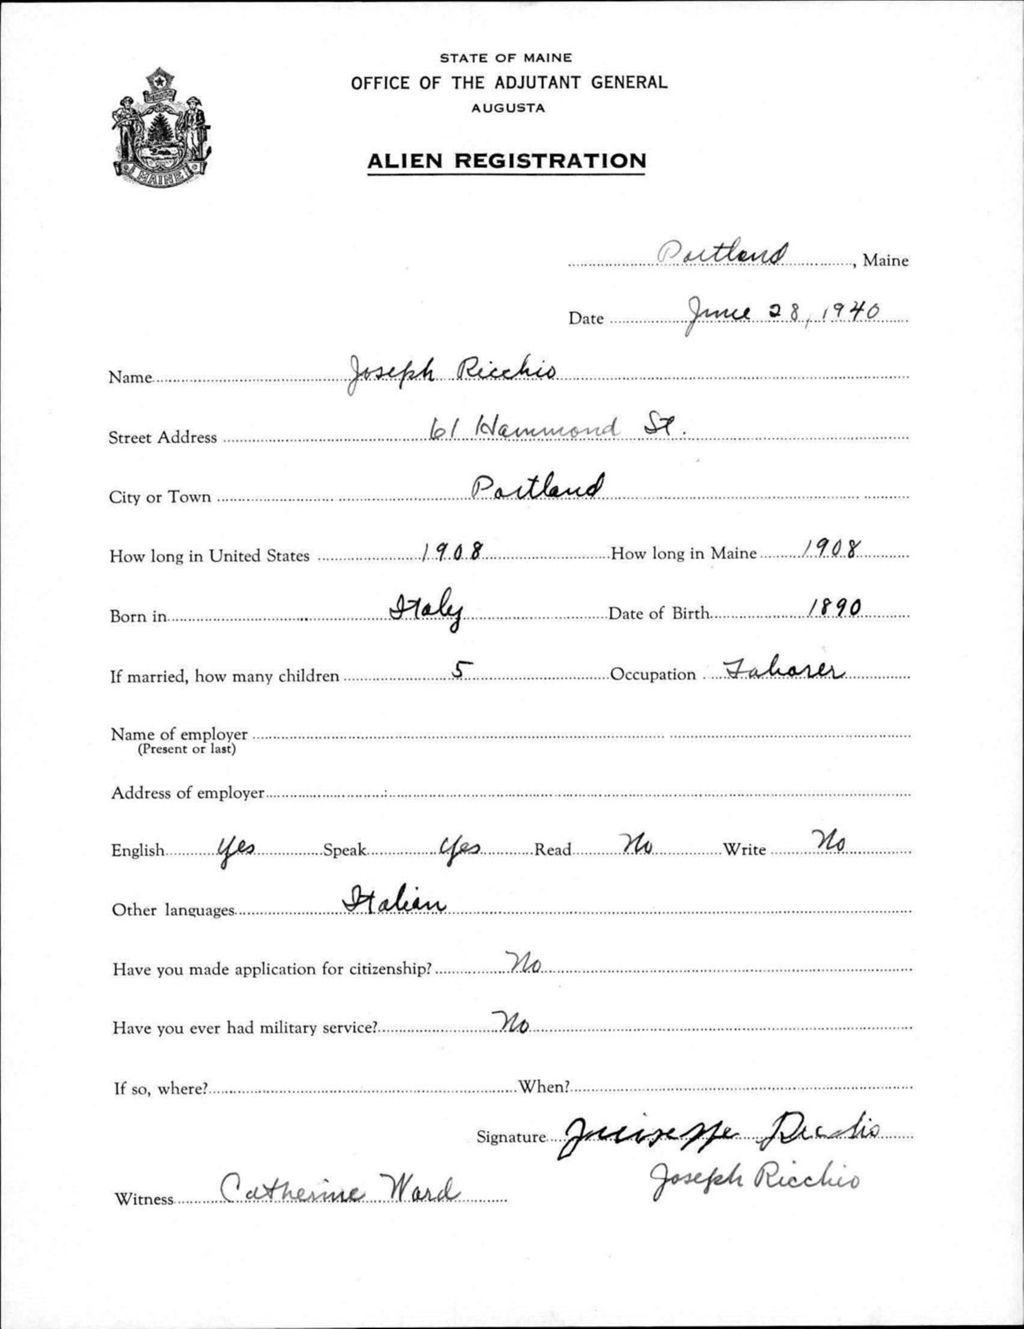 STATE OF MAINE
OFFICE OF THE ADJUTANT GENERAL
AUGUSTA
ALIEN REGISTRATION
MAINE
Portland, Maine
Date June 28, 1940
Name Joseph Ricchio
Street Address 61 Hammond St.
City or Town Portland
How long in United States 1908 How long in Maine 1908
Born in Italy Date of Birth 1890
If married, how many children 5 Occupation Laborer
Name of employer
(Present or last)
Address of employer
English Yes Speak Yes Read No Write No
Other languages Italian
Have you made application for citizenship? No
Have you ever had military service? No
If so, where? When?
Signature
Joseph Ricchio
Witness Catherine Ward